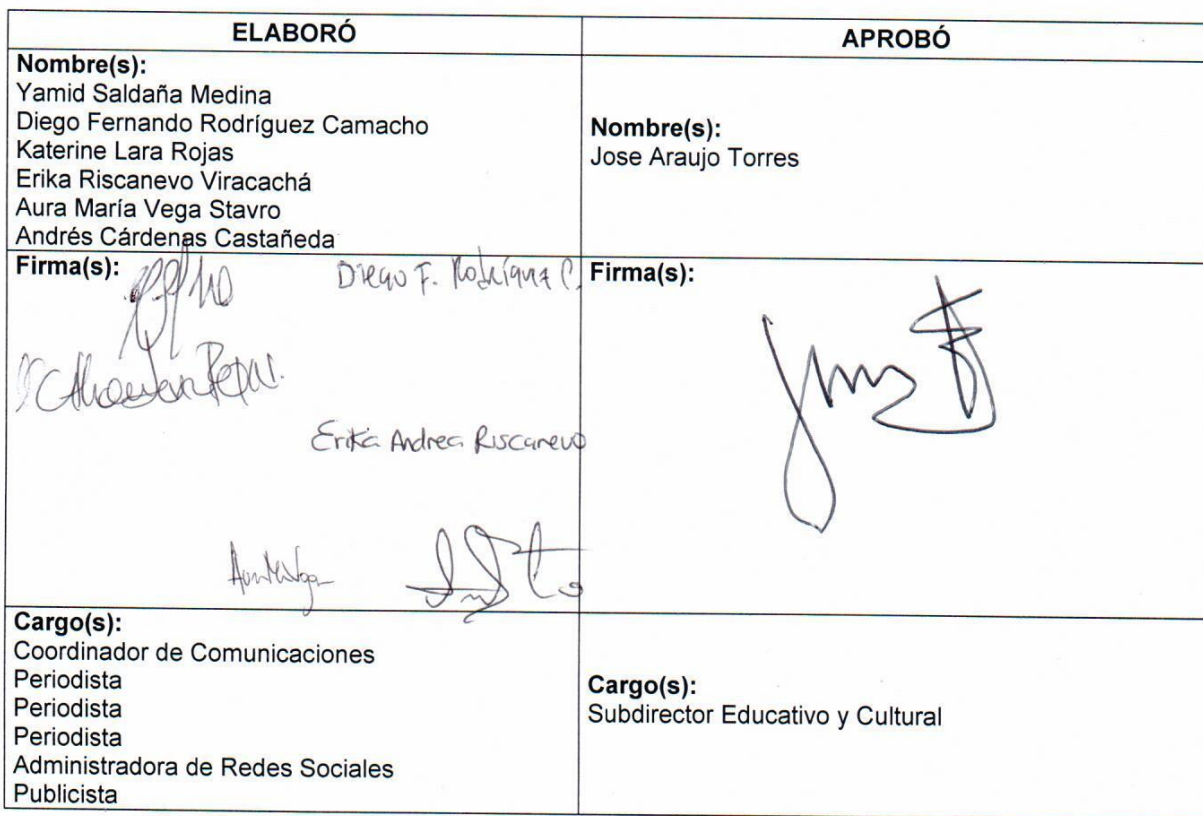 ELABORÓ
APROBÓ
Nombre(s):
Yamid Saldaña Medina
Diego Fernando Rodríguez Camacho
Katerine Lara Rojas
Erika Riscanevo Viracachá
Aura María Vega Stavro
Andrés Cárdenas Castañeda
Nombre(s):
Jose Araujo Torres
Firma(s):
Diego F. Rodríguez C.
Erika Andrea Riscanevo
Firma(s):
Cargo(s):
Coordinador de Comunicaciones
Periodista
Periodista
Periodista
Administradora de Redes Sociales
Publicista
Cargo(s):
Subdirector Educativo y Cultural